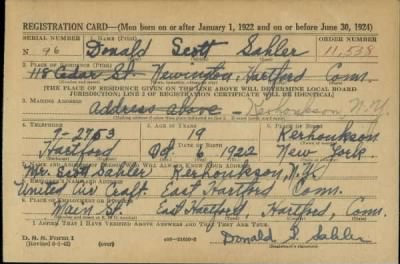 REGISTRATION CARD—(Men born on or after January 1, 1922 and on or before June 30, 1924)
SERIAL NUMBER 1. NAME (Print) ORDER NUMBER
N 96 Donald Scott Sahler 11,538
2. PLACE OF RESIDENCE (Print)
118 Cedar St. Newington, Hartford Conn.
[THE PLACE OF RESIDENCE GIVEN ON THE LINE ABOVE WILL DETERMINE LOCAL BOARD
JURISDICTION; LINE 2 OF REGISTRATION CERTIFICATE WILL BE IDENTICAL]
3. MAILING ADDRESS
Address above - Kerhonkson, N.Y.
4. TELEPHONE 5. AGE IN YEARS 6. PLACE OF BIRTH
7-2753 19 Kerhonkson
DATE OF BIRTH
Hartford Oct 6 1922 New York
7. NAME AND ADDRESS OF PERSON WHO WILL ALWAYS KNOW YOUR ADDRESS
Mr. Scott Sahler Kerhonkson, N.Y.
8. EMPLOYER'S NAME AND ADDRESS
United Air Craft. East Hartford Conn.
9. PLACE OF EMPLOYMENT OR BUSINESS
Main St. East Hartford, Hartford, Conn.
I AFFIRM THAT I HAVE VERIFIED ABOVE ANSWERS AND THAT THEY ARE TRUE.
D. S. S. Form 1
Donald S. Sahler